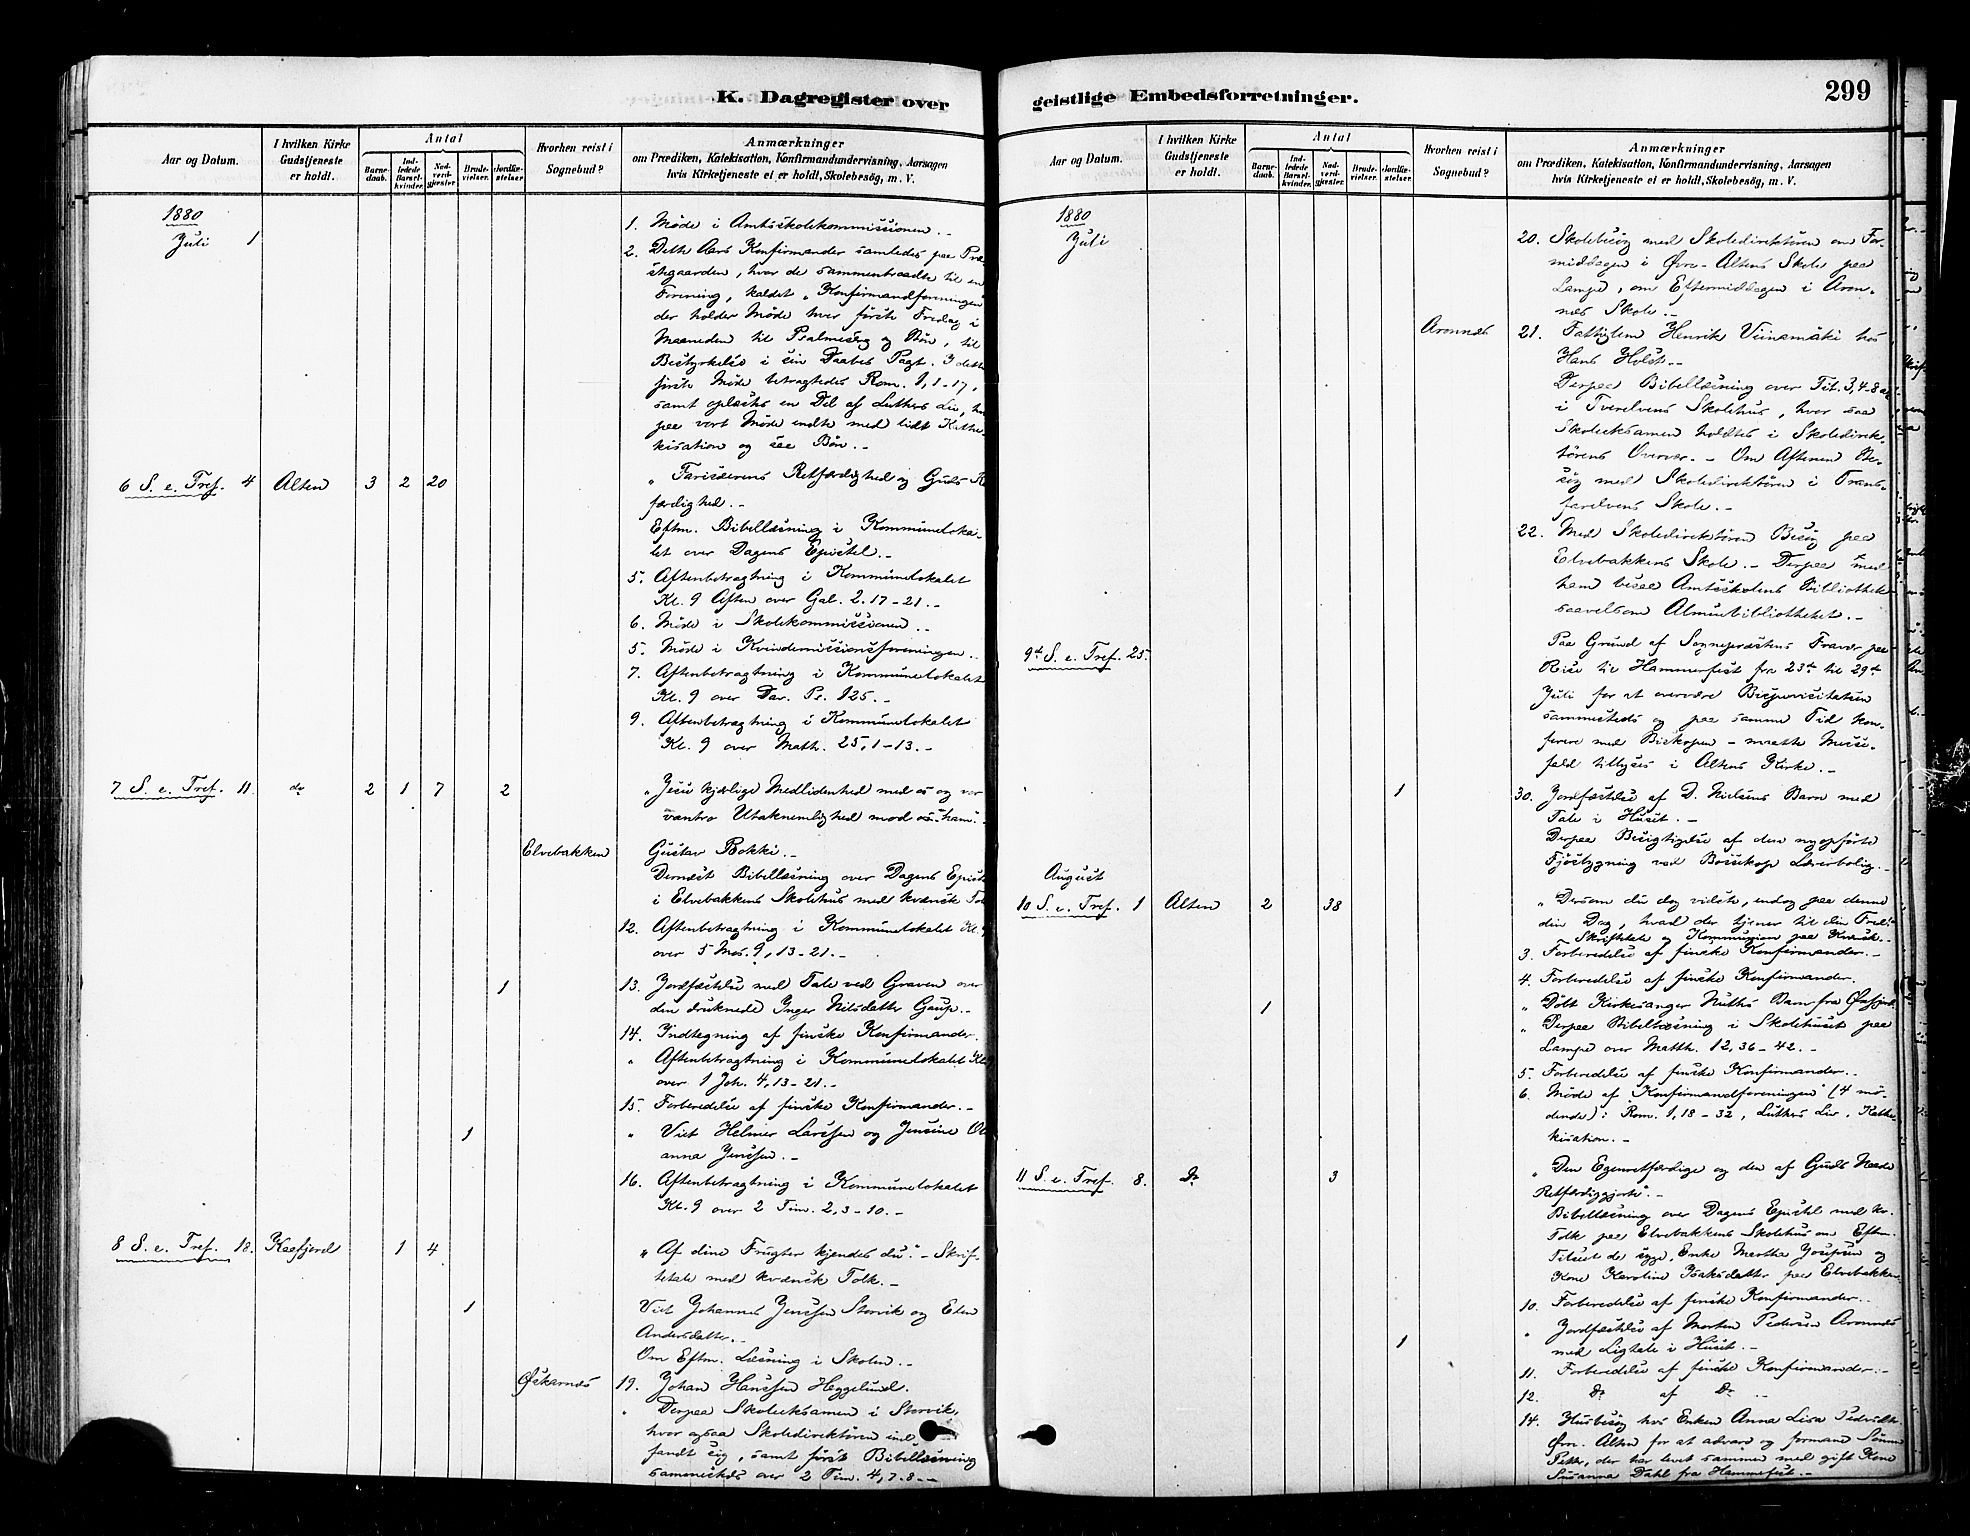 K. Dagregister over
Aar og Datum.
I hvilken Kirke Gudstjeneste er holdt.
Antal
Barnedaab.
Indledede Barselkvinder.
Nadverdgjæster.
Brudevielser.
Jordfæstelser
Hvorhen reist i Sognebud?
Anmærkninger
om Prædiken, Katekisation, Konfirmandundervisning, Aarsagen
hvis Kirketjeneste ei er holdt, Skolebesøg, m. V.
1880
Juli 1
1. Møde i Amtsskolekommissionen.-
2. Dette Aars Konfirmander samledes paa Præ-
stgaarden, hvor de sammentraadte til en
Forening, kaldet "Konfirmandforeningen"
der holder Møde hver første Fredag i
Maaneden til Psalmesang og Bøn, til
Bestyrkelse i sin Daabes Pagt. I dette
første Møde betragtedes Rom. 1, 1-17,
samt oplæstes en Del af Luthers Liv,
paa vort Møde endte med lidt Kate-
kisation og saa Bøn.-
6 S. e. Tref. 4 Alten 3 2 20
"Farisæerens Retfærdighed og Guds
færdighed.-
Eftm. Bibellæsning i Kommunloka-
let over Dagens Epistel.-
5. Aftenbetragtning i Kommunelokalet
Kl. 9 Aften over Gal. 2. 17-21.-
6. Møde i Skolekommissionen.-
5. Møde i Kvindemissionsforeningen.-
7. Aftenbetragtning i Kommunelokalet
Kl. 9 over Dav. Ps. 125.-
9. Aftenbetragtning i Kommunelokalet
Kl. 9 over Math. 25, 1-13.-
7 S. e. Tref. 11. do 2 1 7 2
"Jesu kjærlige Medlidenhed med os og vor
vantro Utaknemlighed mod os ham".-
Elvebakken Gustav Bokki.-
Dernæst Bibellæsning over Dagens Epistel
i Elvebakkens Skolehus med kvænsk Tolk
12. Aftenbetragtning i Kommunelokalet Kl. 9
over 5 Mos. 9, 13-21.-
1 13. Jordfæstelse med Tale ved Graven over
den druknede Inger Nilsdatter Gaup.-
14. Indtegning af finske Konfirmander.
" Aftenbetragtning i Kommunelokalet Kl. 9
over 1 Joh. 4, 13-21.-
15. Forberedelse af finske Konfirmander.-
1 " Viet Helmer Larssen og Jensine
anna Jenssen.-
16. Aftenbetragtning i Kommunelokalet
Kl. 9 over 2 Tim. 2, 3-10.-
8 S. e. Tref. 18. Kaafjord 1 4
"Af dine Frugter kjendes du."- Skrif-
tetale med kvænsk Tolk.-
1 Viet Johannes Jenssen Storvik og Elen
Andersdatter.-
Om Eftm. Læsning i Skolen.-
Øskarnæs 19. Johan Hanssen Heggelund.
" Derpaa Skoleeksamen i Storvik,
hvor ogsaa Skoledirektøren ind
fandt sig, samt først Bibellæsning
sammesteds over 2 Tim. 4, 7-8.-
299
geistlige Embedsforretninger.
Aar og Datum.
I hvilken Kirke Gudstjeneste er holdt.
Antal
Barnedaab.
Indledede Barselkvinder.
Nadverdgjæster.
Brudevielser.
Jordfæstelser
Hvorhen reist i Sognebud?
Anmærkninger
om Prædiken, Katekisation, Konfirmandundervisning, Aarsagen
hvis Kirketjeneste ei er holdt, Skolebesøg, m. V.
1880
Juli
20. Skolebesøg med Skoledirektøren om For-
middagen i Øvre-Altens Skole paa
Lampe, om Eftermiddagen i Aron-
næs Skole.-
Aronnæs 21. Fattiglem Henrik Viinamäki hos
Hans Holst.-
Derpaa Bibellæsning over Tit. 3, 4-8
i Tverelvens Skolehus, hvor saa
Skoleeksamen holdtes i Skoledirek-
tørens Overvær.- Om Aftenen Be-
søg med Skoledirektøren i Trans-
farelvens Skole.-
22. Med Skoledirektøren Besøg paa
Elvebakkens Skole.- Derpaa med
ham besaa Amtsskolens Bibliothek
saavelsom Almuebibliotheket.-
9de S. e. Tref. 25.
Paa Grund af Sognepræstens Fravær paa
Reise til Hammerfest fra 23de til 29de
Juli for at overvære Bispevisitatsen
sammesteds og paa samme Tid kon-
ferere med Biskopen - maatte Messe-
fald tillyses i Altens Kirke.-
1 30. Jordfæstelse af D. Nielsens Barn med
Tale i Huset.-
Derpaa Besigtigelse af den nyopførte
Fjøsbygning ved Bossekop Lærerbolig.-
August
10 S. e. Tref. 1 Alten 2 38
"Dersom du dog vidste, endog paa denne
din Dag, hvad der tjener til din Fred".
Skriftetale og Kommunion paa Kvænsk.-
3. Forberedelse af finske Konfirmander.-
4. Forberedelse af finske Konfirmander.
1 " Døbt Kirkesanger Huths Barn fra Øxfjord.
" Derpaa Bibellæsning i Skolehuset paa
Lampe over Matth. 12, 36-42.-
5. Forberedelse af finske Konfirmander.-
6. Møde af "Konfirmandforeningen" (4 mø-
dende): Rom. 1, 18-32, Luthers Liv, Kate-
kisation.-
11 S. e. Tref. 8. do 3
"Den Egenretfærdige og den af Guds Naade
Retfærdiggjorte".-
Bibellæsning over Dagens Epistel med kv.
Tolk paa Elvebakkens Skolehus om Eftm.
Tilseet de syge, Enke Martha Josepsen og
Kone Karoline Isaksdatter paa Elvebakken.
10. Forberedelse af finske Konfirmander.-
1 " Jordfæstelse af Morten Pedersen Aronnæs
med Ligtale i Huset.-
11. Forberedelse af finske Konfirmander.-
12. do af do.-
14. Husbesøg hos Enken Anna Lisa Pedersdtr.
Øvre Alten for at advare og formane Sønnen
Peder, der har levet sammen med gift Kone
Susanna Dahl fra Hammerfest.-